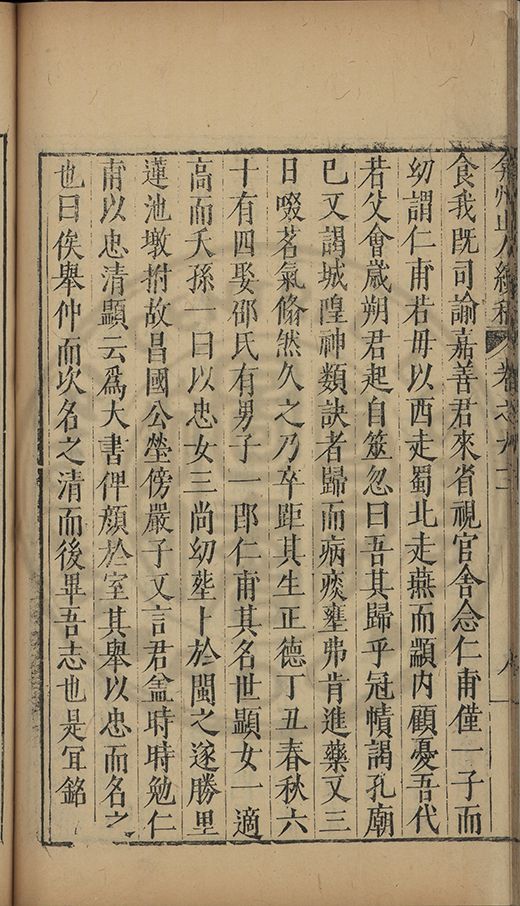 弇州山人續稿 卷之九十三 八
食我既司諭嘉善君來省視官舍念仁甫僅一子而
幼謂仁甫若毋以西走蜀北走燕而顓内顧憂吾代
若父會歲朔君起自筮忽曰吾其歸乎冠幘謁孔廟
已又謁城隍神類訣者歸而病痰壅弗肯進藥又三
日啜茗氣翛然久之乃卒距其生正德丁丑春秋六
十有四娶邵氏有男子一卽仁甫其名世顯女一適
高而夭孫一曰以忠女三尚幼塟卜於閩之遂勝里
蓮池墩拊故昌國公塋傍嚴子又言君盒時時勉仁
甫以忠清顯云爲大書俾顏於室其舉以忠而名之
也曰俟舉仲而次名之清而後畢吾志也是冝銘